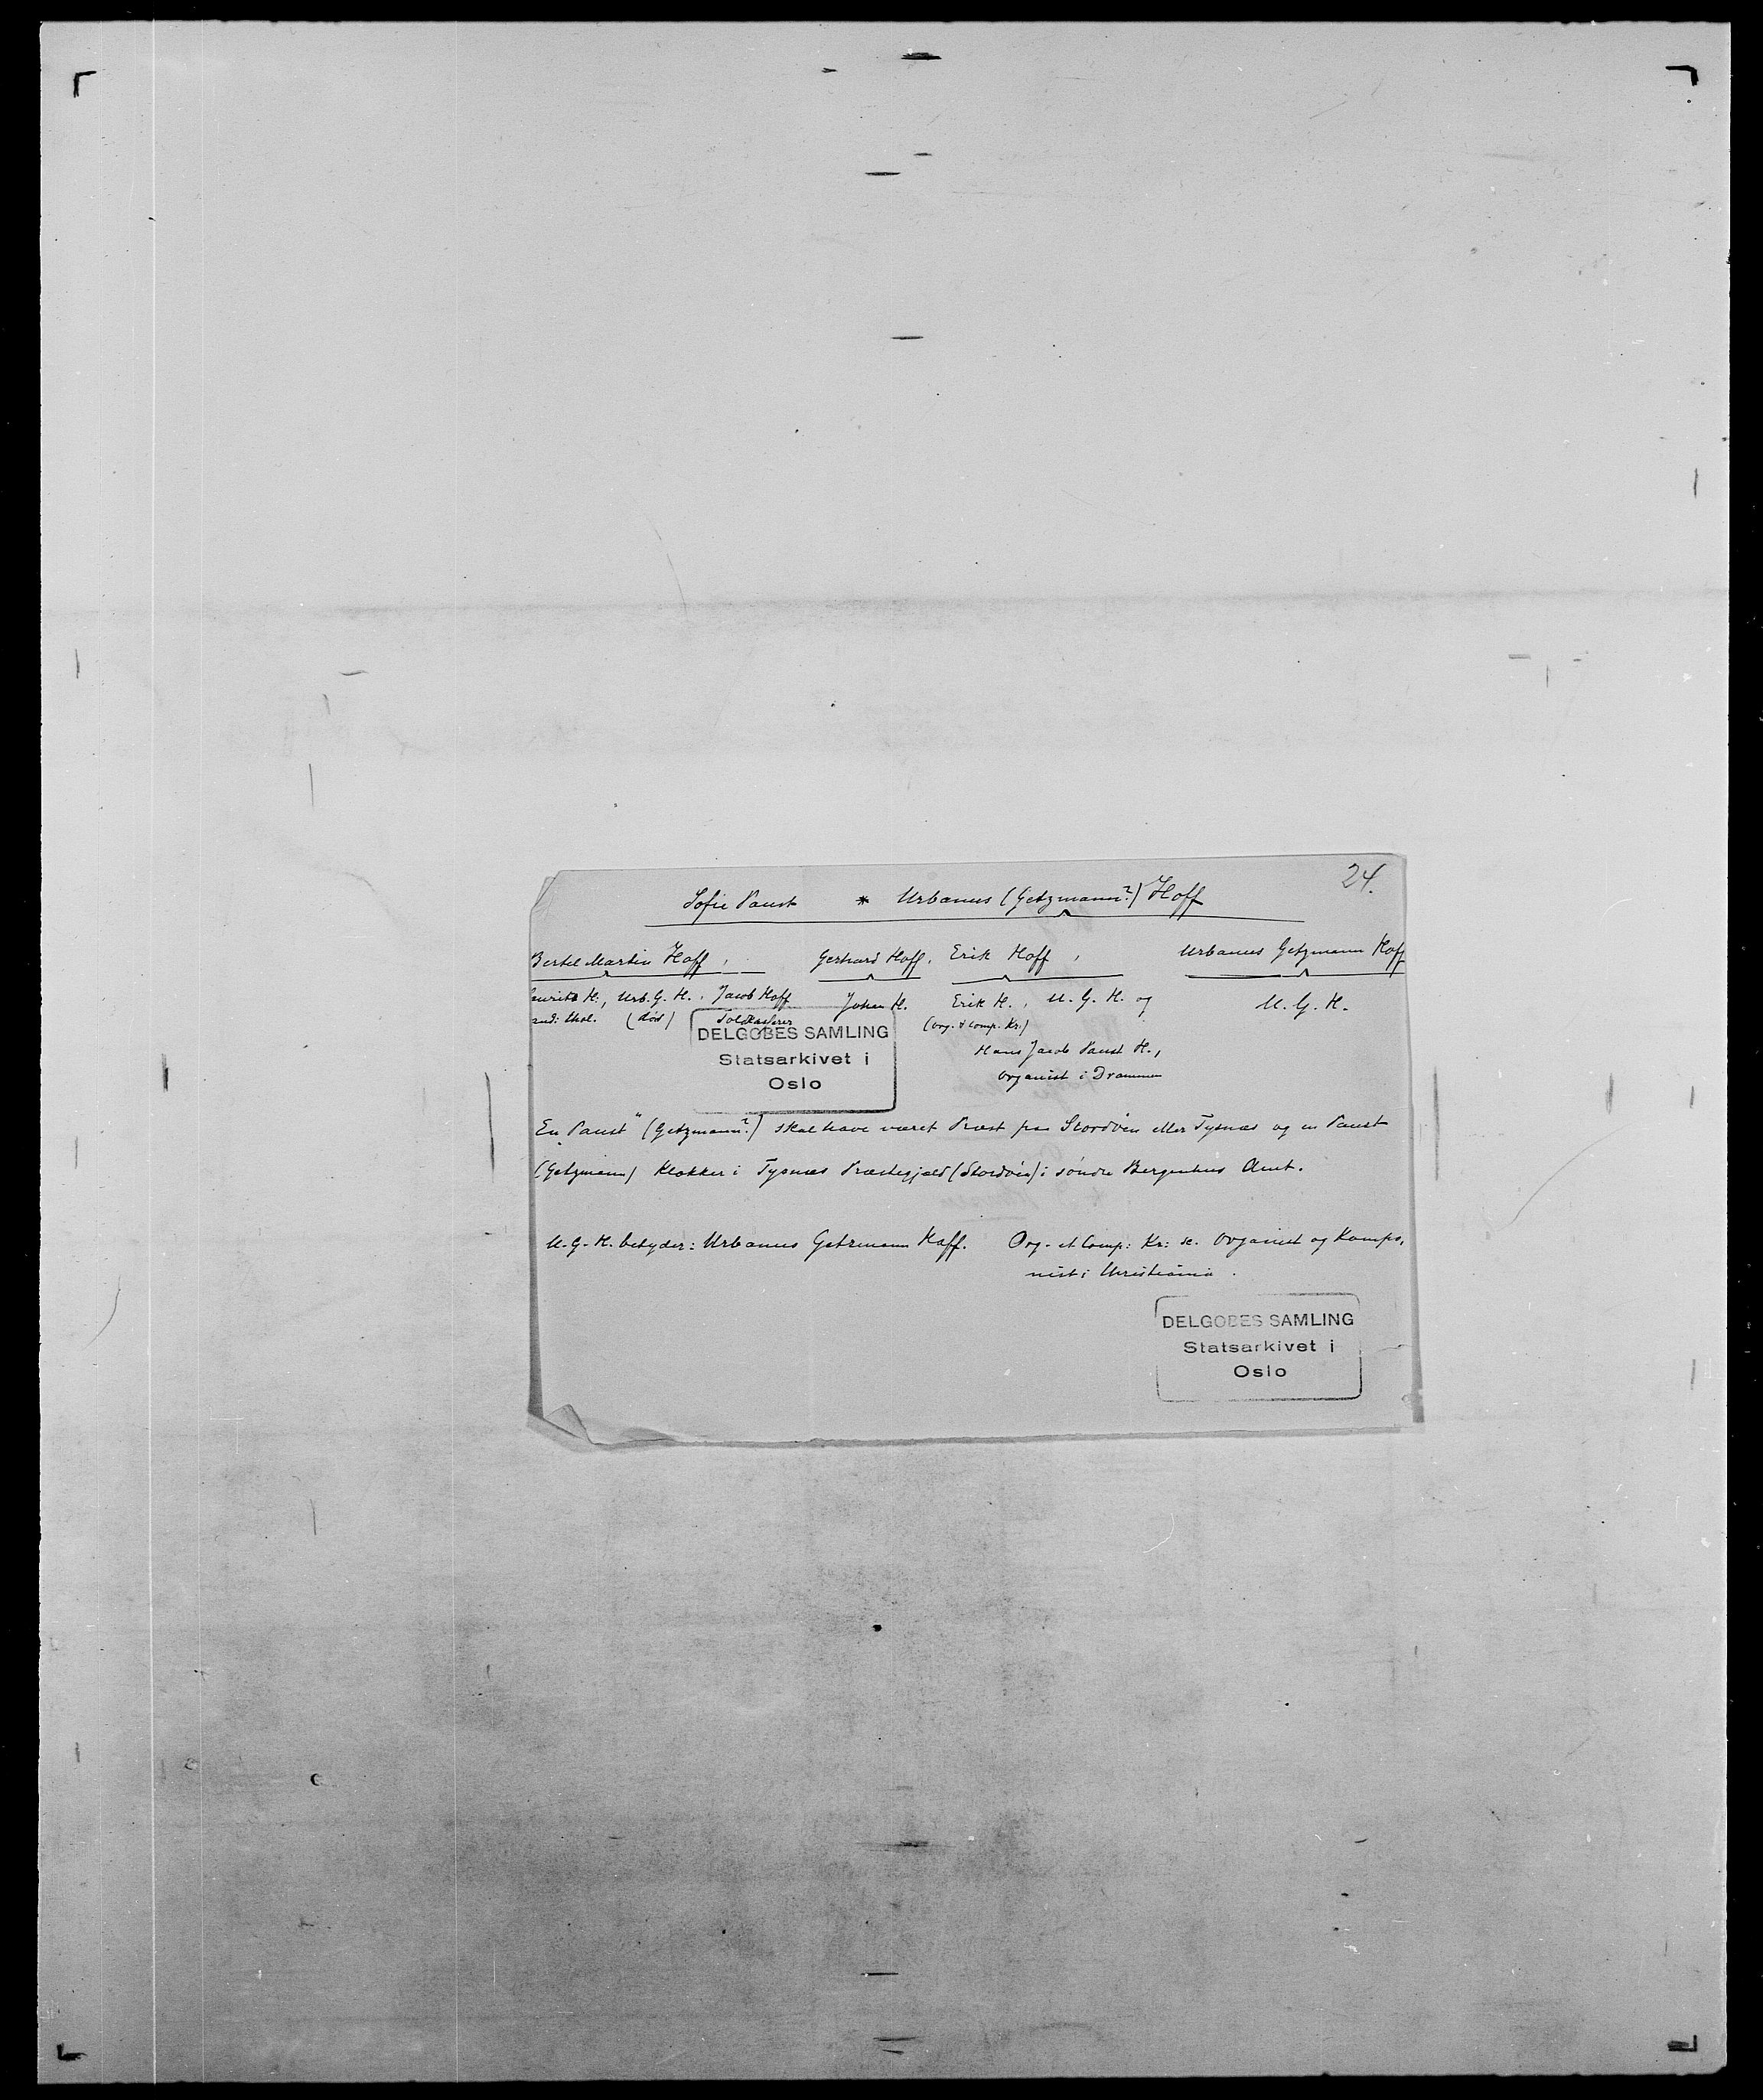 24.
Sofie Paust * Urbanus (Getzmann?) Hoff
Bertel Martin Hoff, Gerhard Hoff, Erik Hoff, Urbanus Getzmann Hoff
Laurits H., Urb. G. H., Jacob Hoff Johan H. Erik H., U. G. H. og U. G. H.
and: theol. (død) Toldkasserer (Org. & Comp. Kr.)
Hans Jacob Paust H.,
Organist i Drammen
DELGOBES SAMLING
Statsarkivet i
Oslo
En „Paust" (Getzmann?) skal have været Præst paa Stordöen eller Tysnæs og en Paust
(Getzmann) Klokker i Tysnæs Præstegjeld (Stordöen) i söndre Bergenhus Amt.
U. G. H. betyder: Urbanus Getzmann Hoff. Org. et Comp: Kr: se. Organist og Kompo,
nist i Christiania.
DELGOBES SAMLING
Statsarkivet i
Oslo